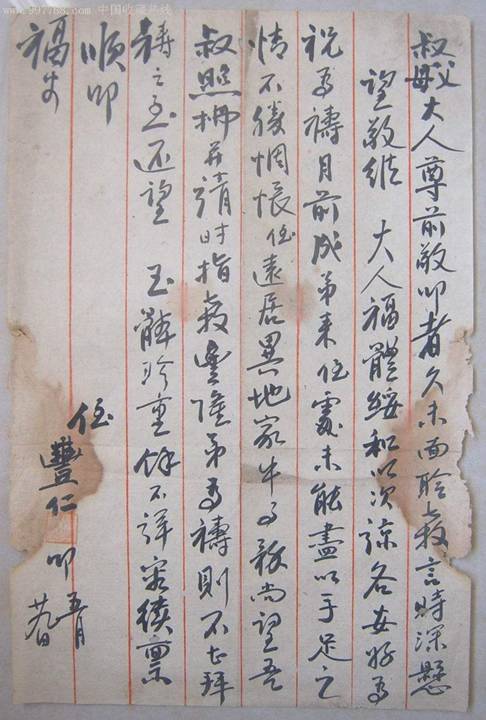 www.997788.com 中国收藏热线
叔父母大人尊前敬叩者久未面聆教言時深懸
望敬維 大人福體綏和以次諒各安好為
祝為禱月前成弟來侄處未能盡以手足之
情不勝惆悵侄遠居異地家中事務尚望吾
叔照拂并請時指教豐隆弟為禱則不亡拜
禱之至還望 玉體珍重餘不詳容續稟
順叩
福安
侄豐仁叩 五月